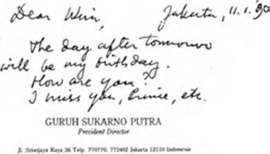 Dear Wim,
Jakarta, 11.1.90
The day after tomorrow
will be my birthday.
How are you?
I miss you, Ernie, etc.
GURUH SUKARNO PUTRA
President Director
Jl. Sriwijaya Raya 26 Telp. 770770, 772402 Jakarta 12110 Indonesia